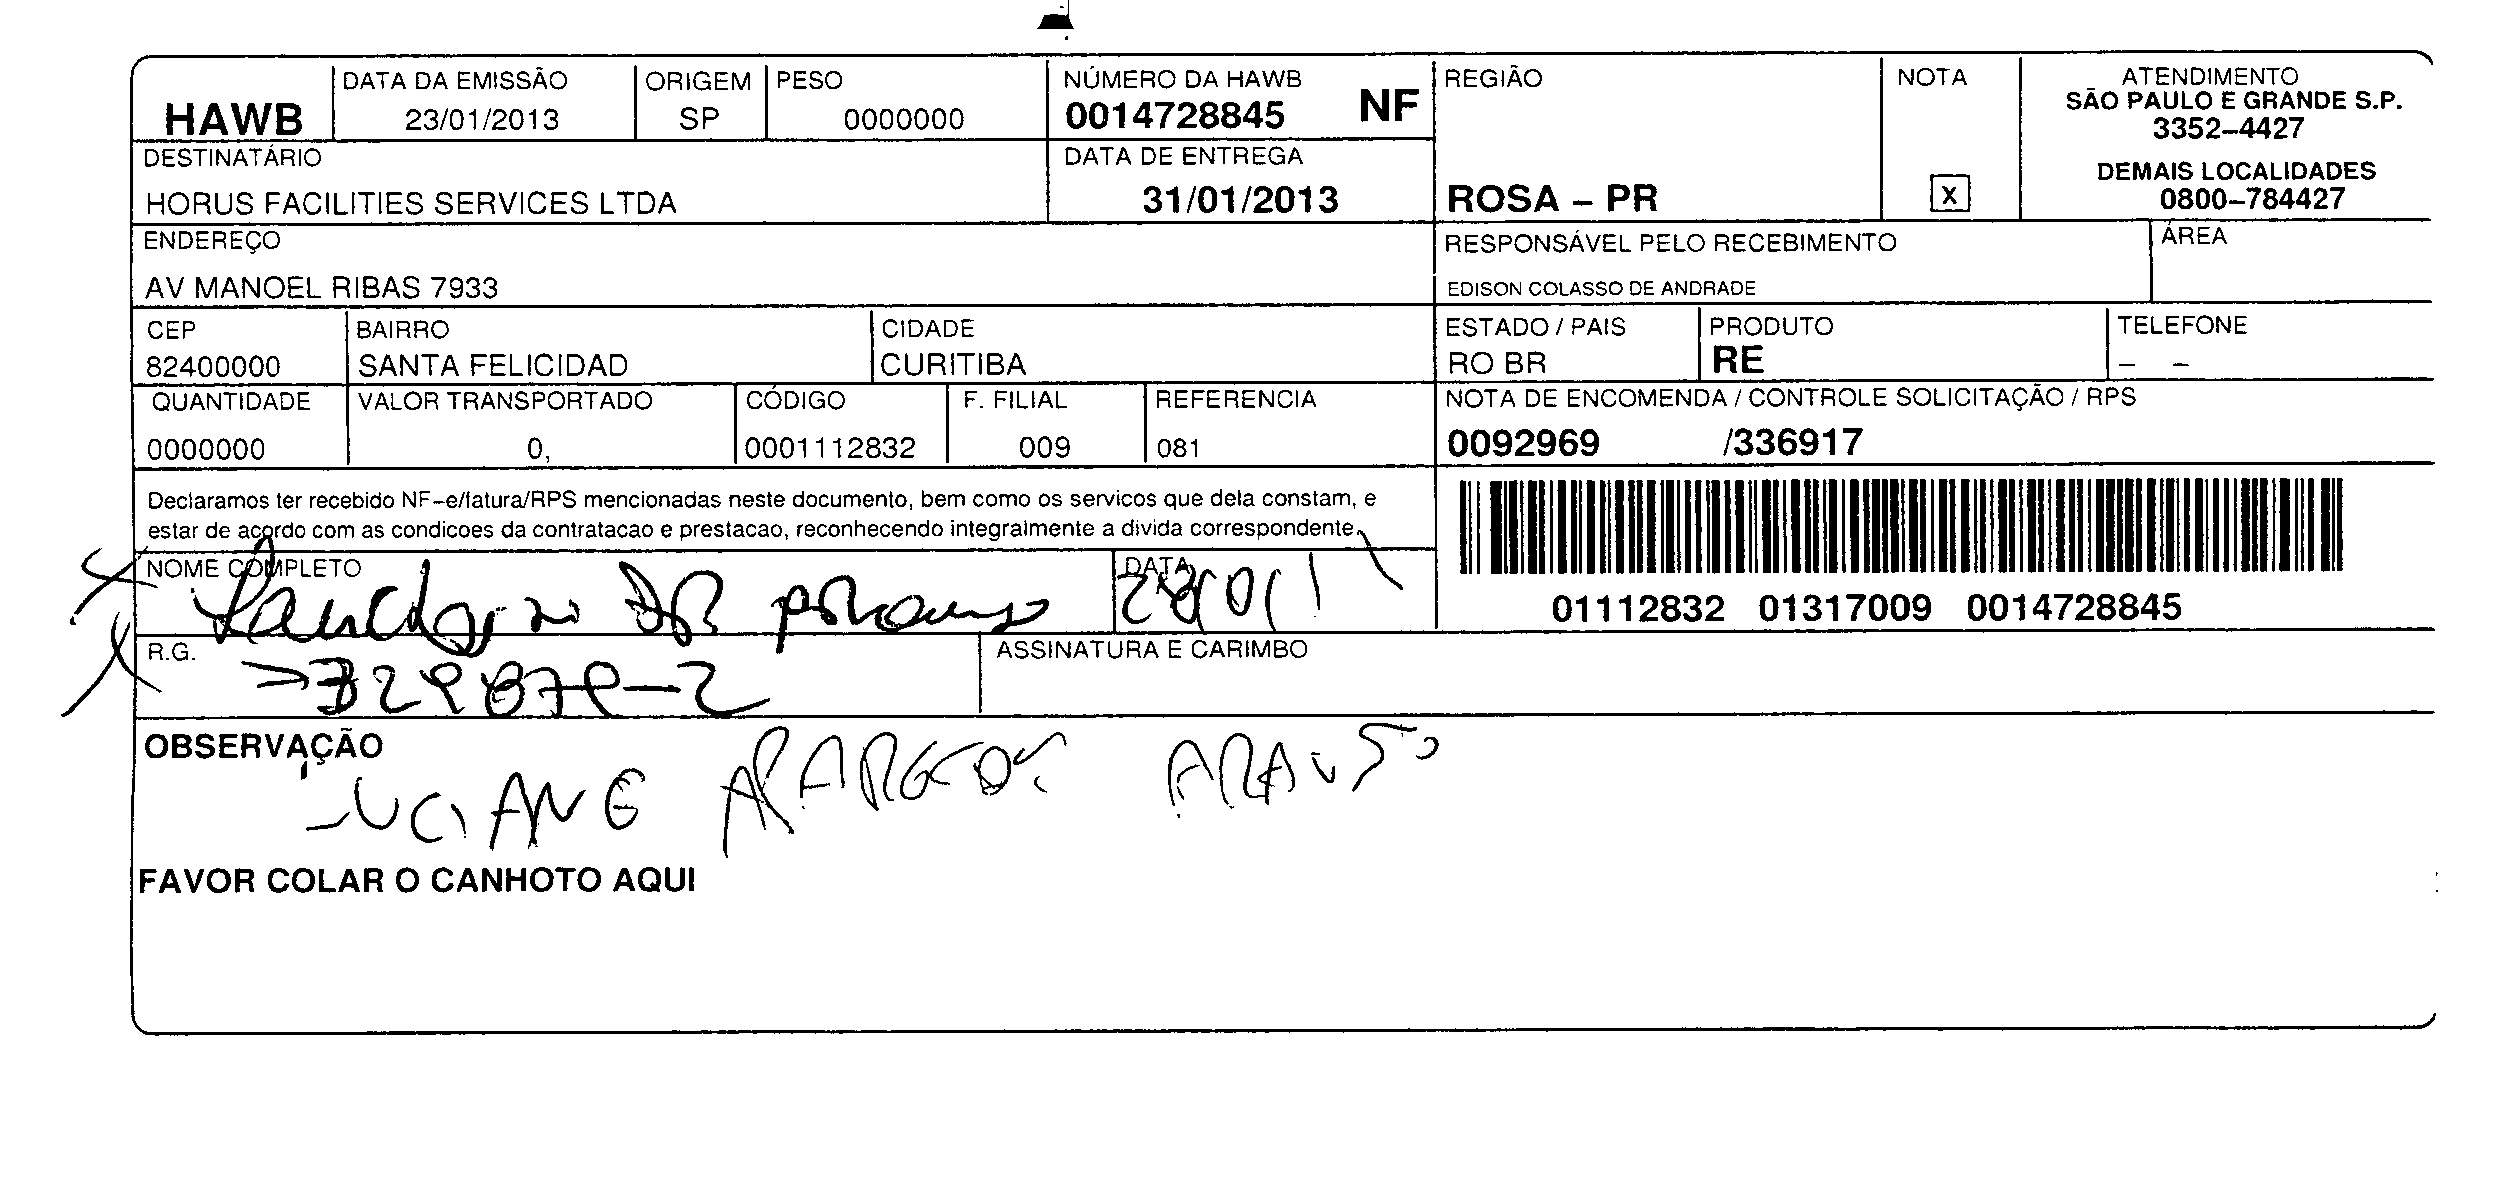 HAWB
DATA DA EMISSÃO
23/01/2013
ORIGEM
SP
PESO
0000000
NÚMERO DA HAWB
0014728845 NF
REGIÃO
ROSA – PR
NOTA
X
ATENDIMENTO
SÃO PAULO E GRANDE S.P.
3352–4427
DEMAIS LOCALIDADES
0800–784427
DESTINATÁRIO
HORUS FACILITIES SERVICES LTDA
DATA DE ENTREGA
31/01/2013
ENDEREÇO
AV MANOEL RIBAS 7933
RESPONSÁVEL PELO RECEBIMENTO
EDISON COLASSO DE ANDRADE
ÁREA
CEP
82400000
BAIRRO
SANTA FELICIDAD
CIDADE
CURITIBA
ESTADO / PAIS
RO BR
PRODUTO
RE
TELEFONE
– –
QUANTIDADE
0000000
VALOR TRANSPORTADO
0,
CÓDIGO
0001112832
F. FILIAL
009
REFERENCIA
081
NOTA DE ENCOMENDA / CONTROLE SOLICITAÇÃO / RPS
0092969 /336917
Declaramos ter recebido NF–e/fatura/RPS mencionadas neste documento, bem como os servicos que dela constam, e
estar de acordo com as condicoes da contratacao e prestacao, reconhecendo integralmente a divida correspondente.
01112832 01317009 0014728845
NOME COMPLETO
DATA
28/01/
R.G.
ASSINATURA E CARIMBO
OBSERVAÇÃO
LUCIANE ARAUJO
FAVOR COLAR O CANHOTO AQUI